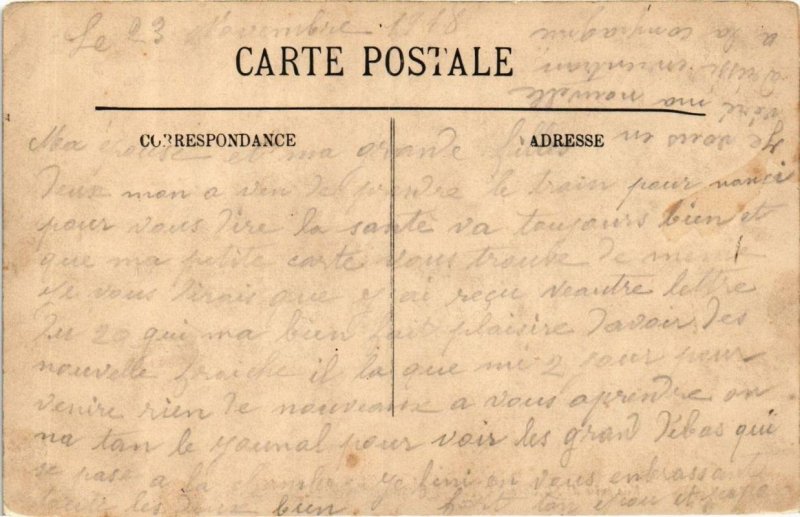 Le 23 Novembre 1918
CARTE POSTALE
CORRESPONDANCE
ADRESSE
Ma et ma grande fillès
deux mon a ven de prendre le train pour nanci
pour vous dire la santé va toujours bien et
que ma petite carte vous trouve de meme
Je vous dirais que j'ai reçu veautre lettre
du 20 qui ma bien fait plaisire davoir des
nouvelle fraiche il la que mi 2 jour pour
venire rien de nouveaux a vous aprendre on
na tan le jounal pour voir les grand débas qui
se pase a la chambre je fini en vous enbrassant
toute les deux bien fort ton et papa
Je vous en
ma nouvelle
a la compagnie